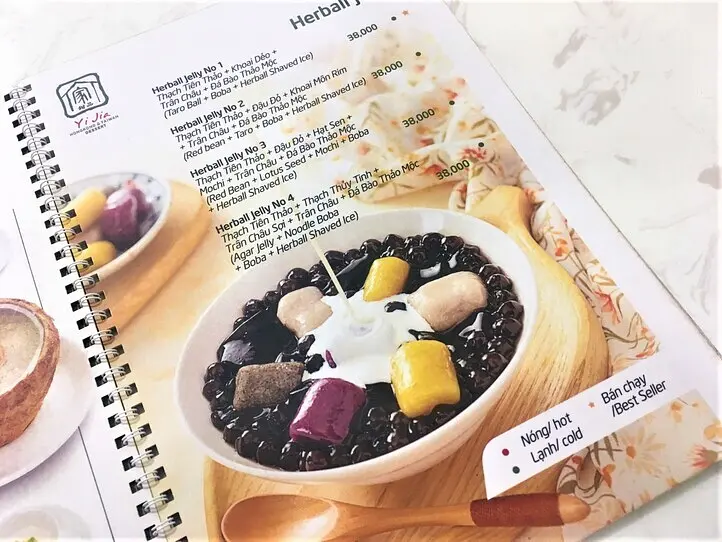 Herball J
家
Yi Jia
HONGKONG & TAIWAN
DESSERT
Herball Jelly No 1
38,000
Thạch Tiên Thảo + Khoai Dẻo +
Trân Châu + Đá Bào Thảo Mộc
(Taro Ball + Boba + Herball Shaved Ice)
Herball Jelly No 2
38,000
Thạch Tiên Thảo + Đậu Đỏ + Khoai Môn Rim
+ Trân Châu + Đá Bào Thảo Mộc
(Red bean + Taro + Boba + Herball Shaved Ice)
Herball Jelly No 3
38,000
Thạch Tiên Thảo + Đậu Đỏ + Hạt Sen +
Mochi + Trân Châu + Đá Bào Thảo Mộc
(Red Bean + Lotus Seed + Mochi + Boba
+ Herball Shaved Ice)
Herball Jelly No 4
38,000
Thạch Tiên Thảo + Thạch Thủy Tinh +
Trân Châu Sợi + Trân Châu + Đá Bào Thảo Mộc
(Agar Jelly + Noodle Boba
+ Boba + Herball Shaved Ice)
Nóng/ hot
Lạnh/ cold
Bán chạy
/Best Seller